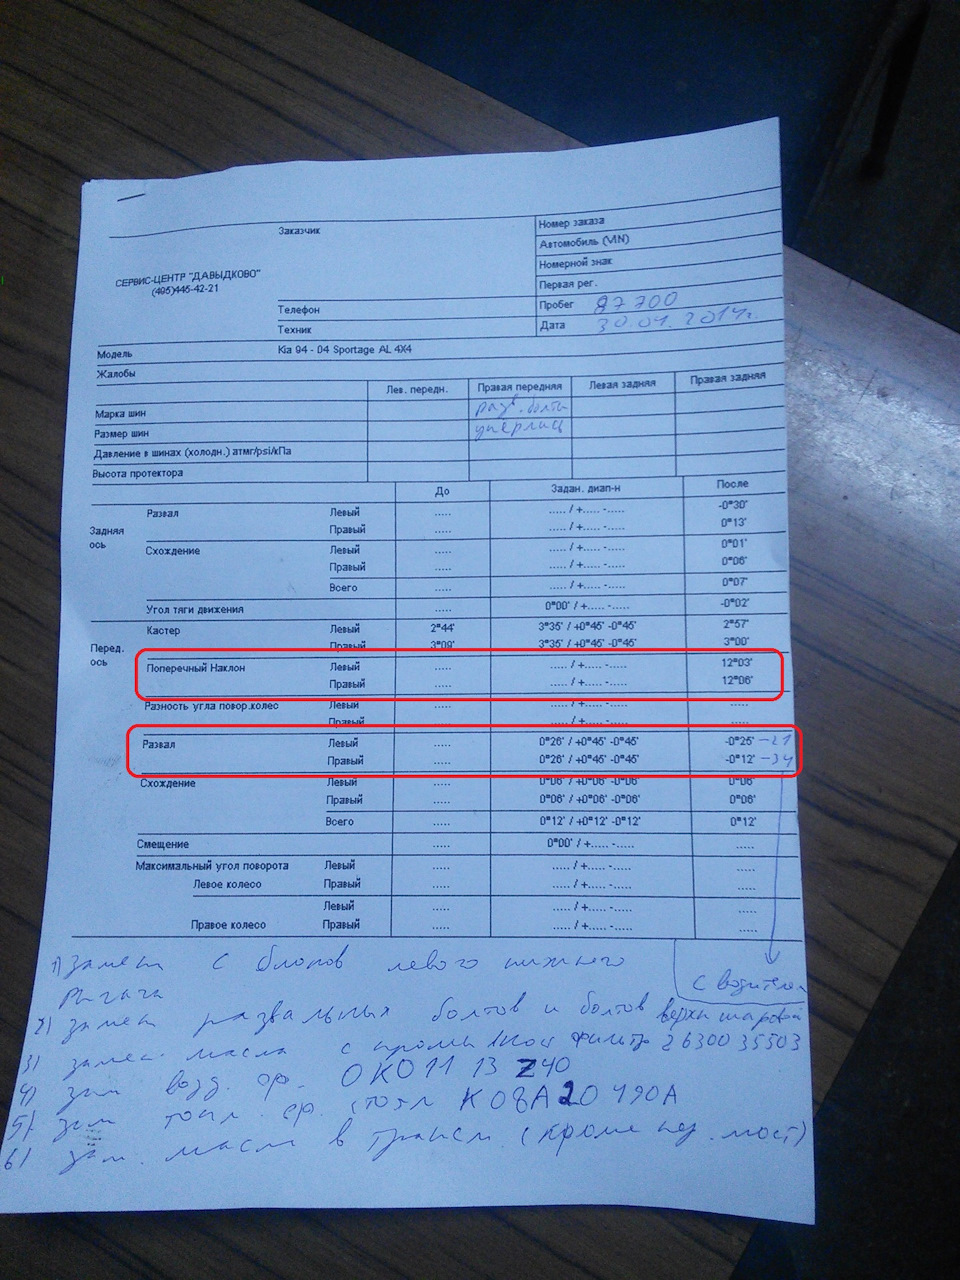 Заказчик
Номер заказа
Автомобиль (VIN)
Номерной знак
Первая рег.
СЕРВИС-ЦЕНТР "ДАВЫДКОВО"
(495)445-42-21
Телефон
Пробег 87700
Техник
Дата 30.04.2014г.
Модель Kia 94 - 04 Sportage AL 4X4
Жалобы
Лев. передн. Правая передняя Левая задняя Правая задняя
Марка шин разв. болты
Размер шин уперлись
Давление в шинах (холодн.) атмг/psi/кПа
Высота протектора
До Задан. диап-н После
Задняя ось
Развал Левый ..... ..... / +..... -..... -0°30'
Правый ..... ..... / +..... -..... 0°13'
Схождение Левый ..... ..... / +..... -..... 0°01'
Правый ..... ..... / +..... -..... 0°06'
Всего ..... ..... / +..... -..... 0°07'
Угол тяги движения ..... 0°00' / +..... -..... -0°02'
Перед. ось
Кастер Левый 2°44' 3°35' / +0°45' -0°45' 2°57'
Правый 3°09' 3°35' / +0°45' -0°45' 3°00'
Поперечный Наклон Левый ..... ..... / +..... -..... 12°03'
Правый ..... ..... / +..... -..... 12°06'
Разность угла повор.колес Левый ..... ..... / +..... -..... .....
Правый ..... ..... / +..... -..... .....
Развал Левый ..... 0°26' / +0°45' -0°45' -0°25' -21
Правый ..... 0°26' / +0°45' -0°45' -0°12' -34
Схождение Левый ..... 0°06' / +0°06' -0°06' 0°06'
Правый ..... 0°06' / +0°06' -0°06' 0°06'
Всего ..... 0°12' / +0°12' -0°12' 0°12'
Смещение ..... 0°00' / +..... -..... .....
Максимальный угол поворота Левый ..... ..... / +..... -..... .....
Левое колесо Правый ..... ..... / +..... -..... .....
Левый ..... ..... / +..... -..... .....
Правое колесо Правый ..... ..... / +..... -..... .....
с водителем
1) замен с блоков левого нижнего
рычага
2) замен развальных болтов и болтов верхн шаровой
3) замен масла с пром фильтр 26300 35503
4) зам возд. ф. OKO11 13 Z40
5) зам топл. ф. K08A20 490A
6) зам. масл в трансм. (кроме пер. мост)